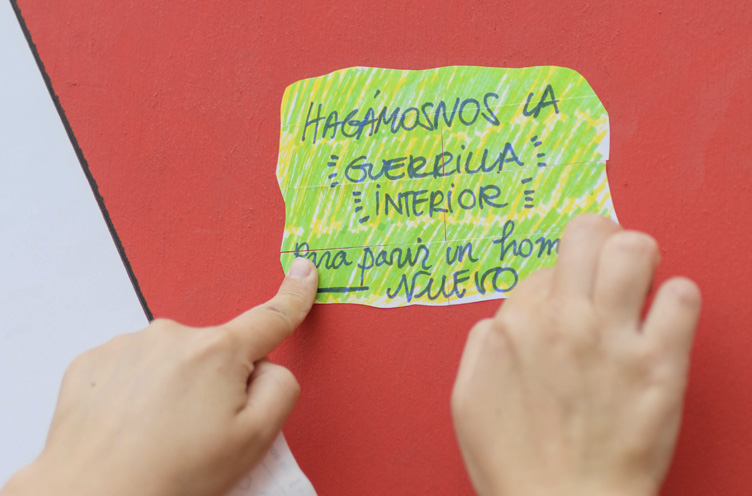 HAGÁMOSNOS LA
GUERRILLA
INTERIOR
Para parir un hom
NUEVO